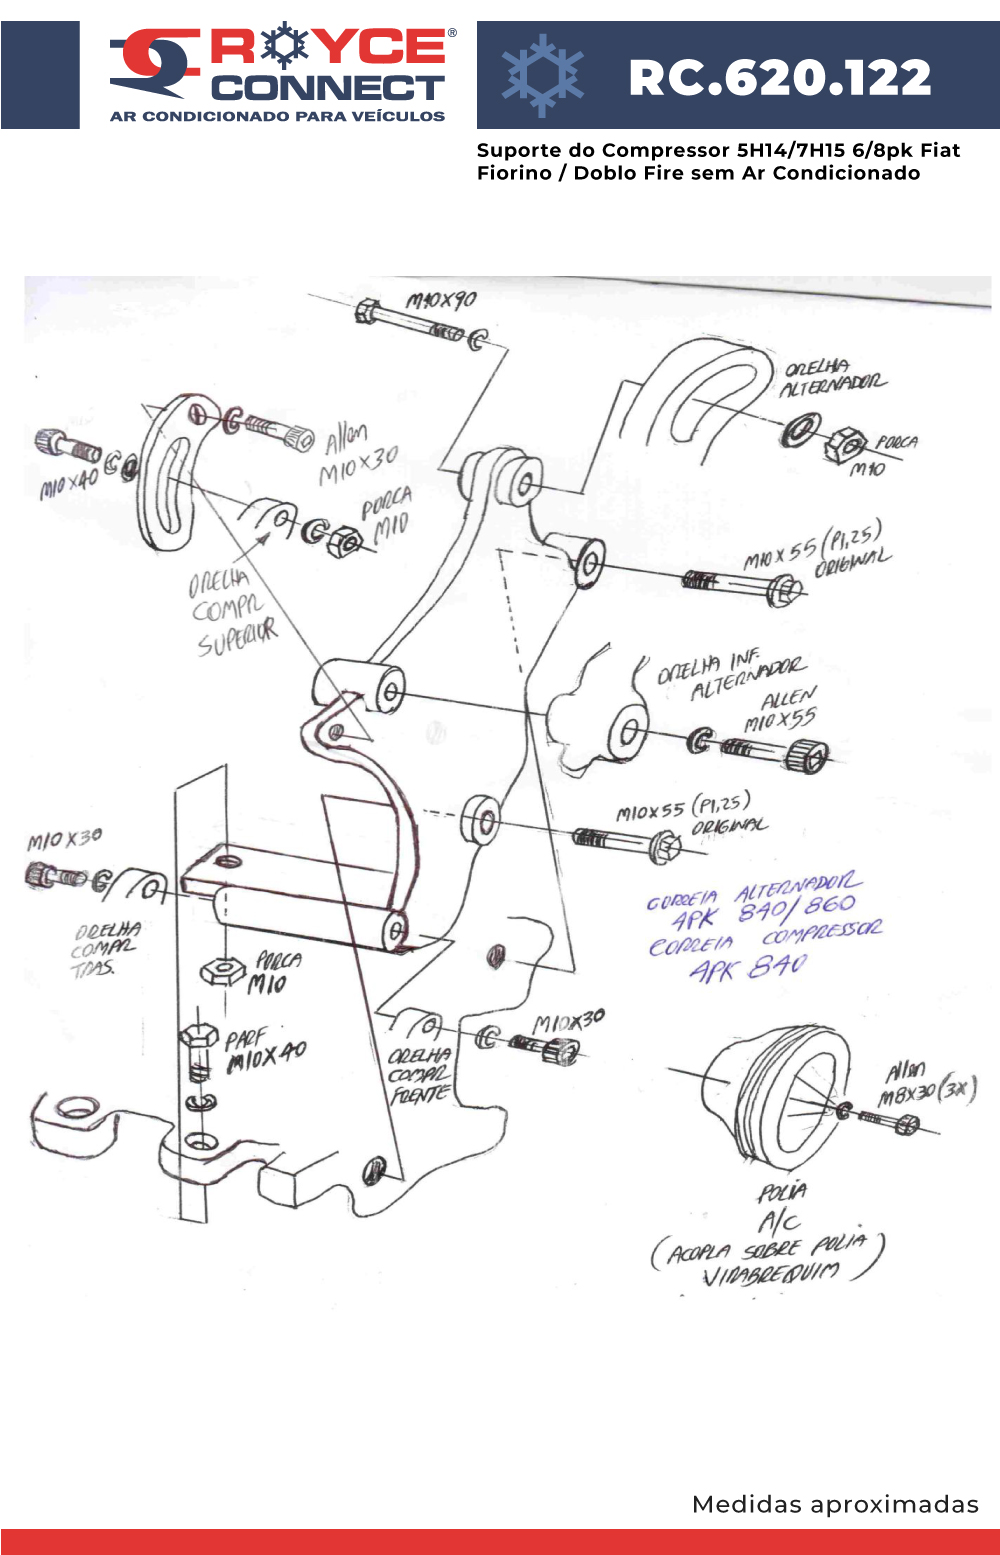 ROYCE®
CONNECT
AR CONDICIONADO PARA VEÍCULOS
RC.620.122
Suporte do Compressor 5H14/7H15 6/8pk Fiat
Fiorino / Doblo Fire sem Ar Condicionado
M10X90
ORELHA
ALTERNADOR
PORCA
M10
Allen
M10X30
M10X40
PORCA
M10
ORELHA
COMPR
SUPERIOR
M10X55 (P1,25)
ORIGINAL
ORELHA INF.
ALTERNADOR
ALLEN
M10X55
M10X55 (P1,25)
ORIGINAL
M10X30
ORELHA
COMPR
TRAS.
PORCA
M10
PARF
M10X40
CORREIA ALTERNADOR
4PK 840/860
CORREIA COMPRESSOR
4PK 840
M10X30
ORELHA
COMPR
FRENTE
Allen
M8X30 (3X)
POLIA
A/C
(ACOPLA SOBRE POLIA
VIRABREQUIM)
Medidas aproximadas